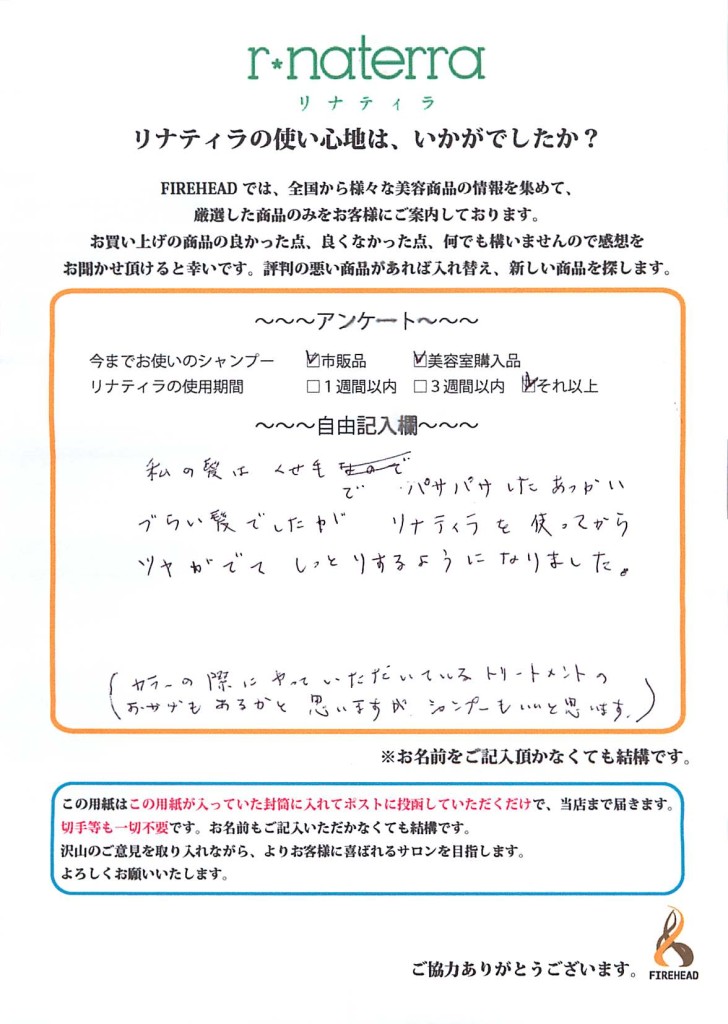 r*naterra
リナティラ
リナティラの使い心地は、いかがでしたか？
FIREHEADでは、全国から様々な美容商品の情報を集めて、
厳選した商品のみをお客様にご案内しております。
お買い上げの商品の良かった点、良くなかった点、何でも構いませんので感想を
お聞かせ頂けると幸いです。評判の悪い商品があれば入れ替え、新しい商品を探します。
～～～アンケート～～～
今までお使いのシャンプー ☑市販品 ☑美容室購入品
リナティラの使用期間 □１週間以内 □３週間以内 ☑それ以上
～～～自由記入欄～～～
私の髪は くせ毛 なので
で パサパサしたあつかい
づらい髪でしたが リナティラを使ってから
ツヤがでて しっとりするようになりました。
(カラーの際にやっていただいているトリートメントの
おかげもあるかと思いますが シャンプーもいいと思います。)
※お名前をご記入頂かなくても結構です。
この用紙はこの用紙が入っていた封筒に入れてポストに投函していただくだけで、当店まで届きます。
切手等も一切不要です。お名前もご記入いただかなくても結構です。
沢山のご意見を取り入れながら、よりお客様に喜ばれるサロンを目指します。
よろしくお願いいたします。
ご協力ありがとうございます。
FIREHEAD